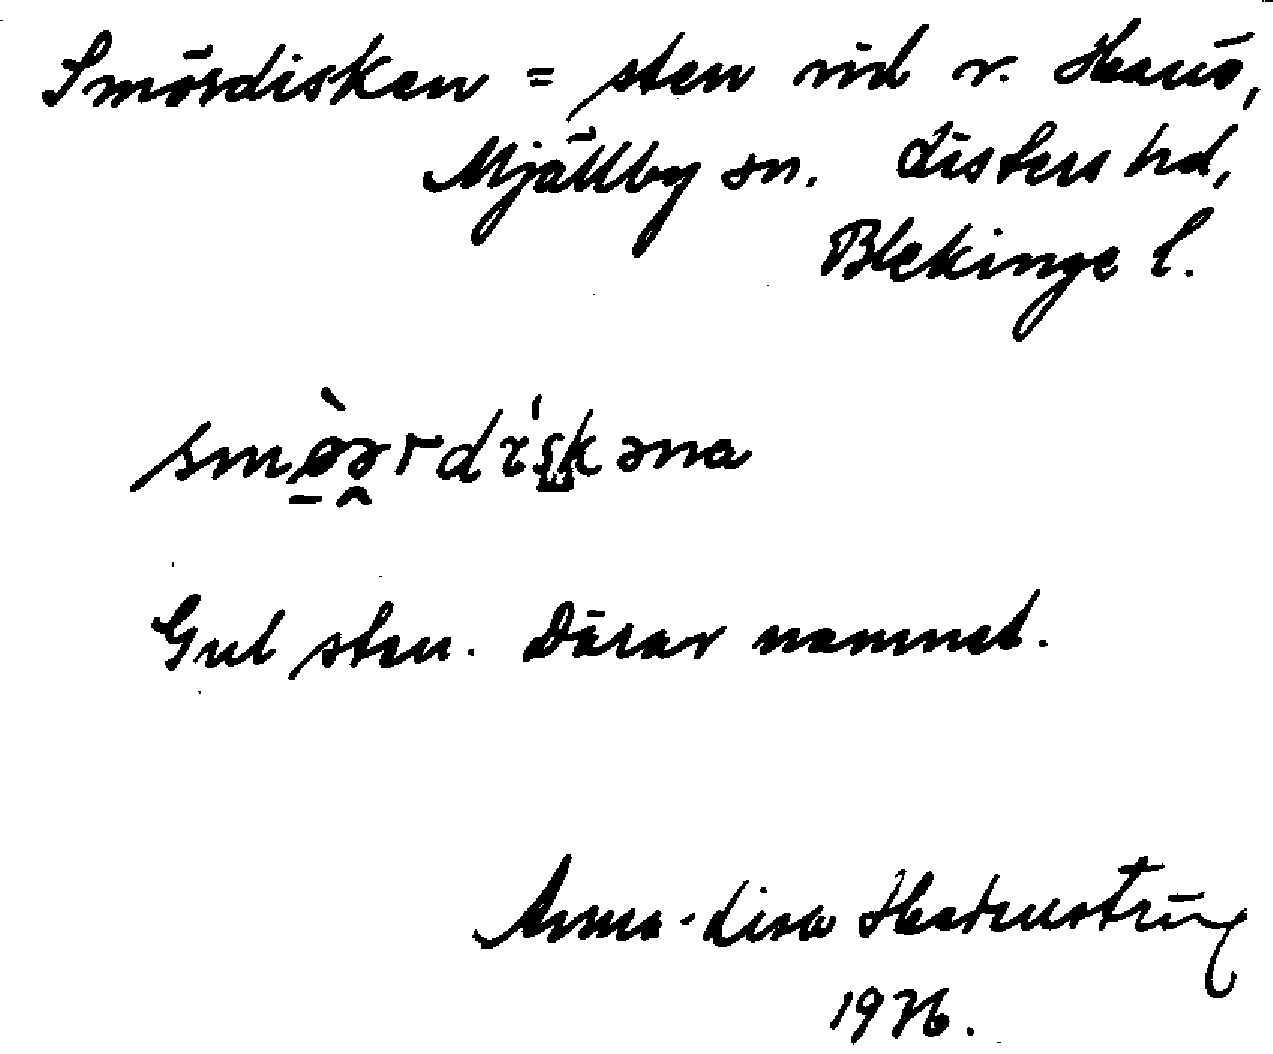 Smördisken = sten vid v. Hanö,
Mjällby sn. Listers hd,
Blekinge l.
Gul sten. Därav namnet.
Anna-Lisa
1976.